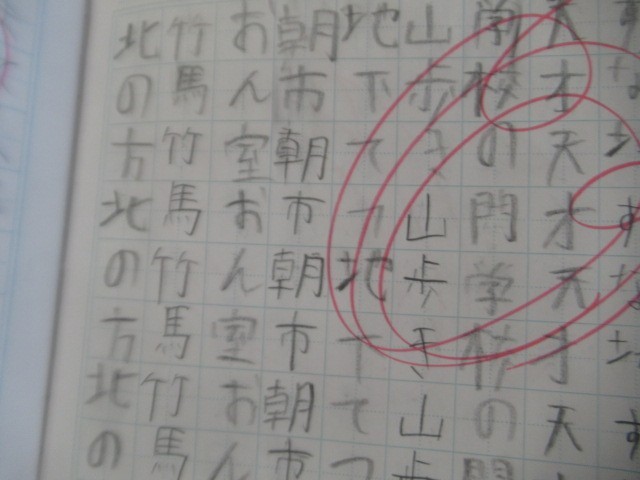 天才天才天才天
学校の門学校の門
山歩き山歩き山歩
地下てつ地下てつ
朝市朝市朝市朝市
おん室おん室おん
竹馬竹馬竹馬竹馬
北の方北の方北の